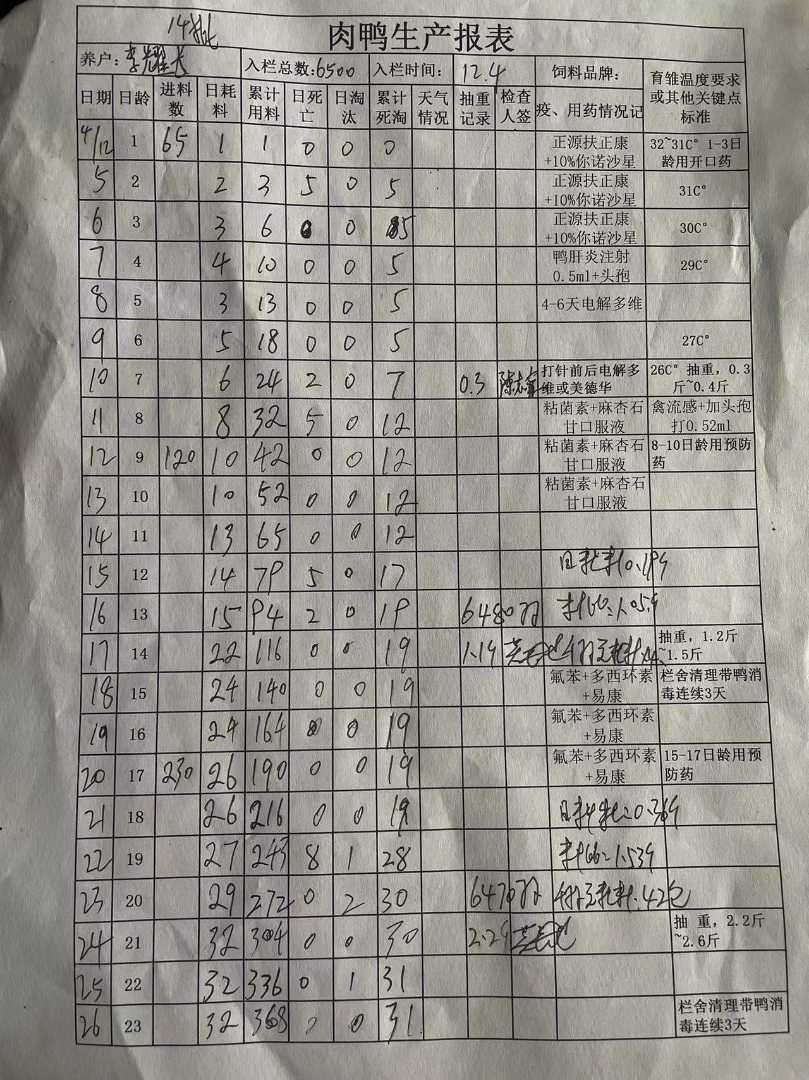 14批
肉鸭生产报表
养户: 李耀长 入栏总数:6500 入栏时间: 12.4 饲料品牌: 育雏温度要求或其他关键点标准
日期 日龄 进料数 日耗料 累计用料 日死亡 日淘汰 累计死淘 天气情况 抽重记录 检查人签 疫、用药情况记
4/12 1 65 1 1 0 0 0 正源扶正康+10%你诺沙星 32~31C° 1-3日龄用开口药
5 2 2 3 5 0 5 正源扶正康+10%你诺沙星 31C°
6 3 3 6 0 0 5 正源扶正康+10%你诺沙星 30C°
7 4 4 10 0 0 5 鸭肝炎注射0.5ml+头孢 29C°
8 5 3 13 0 0 5 4-6天电解多维
9 6 5 18 0 0 5 27C°
10 7 6 24 2 0 7 0.3 打针前后电解多维或美德华 26C° 抽重，0.3斤~0.4斤
11 8 8 32 5 0 12 粘菌素+麻杏石甘口服液 禽流感+加头孢打0.52ml
12 9 120 10 42 0 0 12 粘菌素+麻杏石甘口服液 8-10日龄用预防药
13 10 10 52 0 0 12 粘菌素+麻杏石甘口服液
14 11 13 65 0 0 12
15 12 14 79 5 0 17 日耗料0.19斤
16 13 15 94 2 0 19 6480羽 料比:1.05斤
17 14 22 116 0 0 19 1.1斤 抽重，1.2斤~1.5斤
18 15 24 140 0 0 19 氟苯+多西环素+易康 栏舍清理带鸭消毒连续3天
19 16 24 164 0 0 19 氟苯+多西环素+易康
20 17 230 26 190 0 0 19 氟苯+多西环素+易康 15-17日龄用预防药
21 18 26 216 0 0 19 日耗料:0.36斤
22 19 27 243 8 1 28 料比:1.53斤
23 20 29 272 0 2 30 6470羽 耗料.42包
24 21 32 304 0 0 30 2.2斤 抽 重，2.2斤~2.6斤
25 22 32 336 0 1 31
26 23 32 368 0 0 31 栏舍清理带鸭消毒连续3天